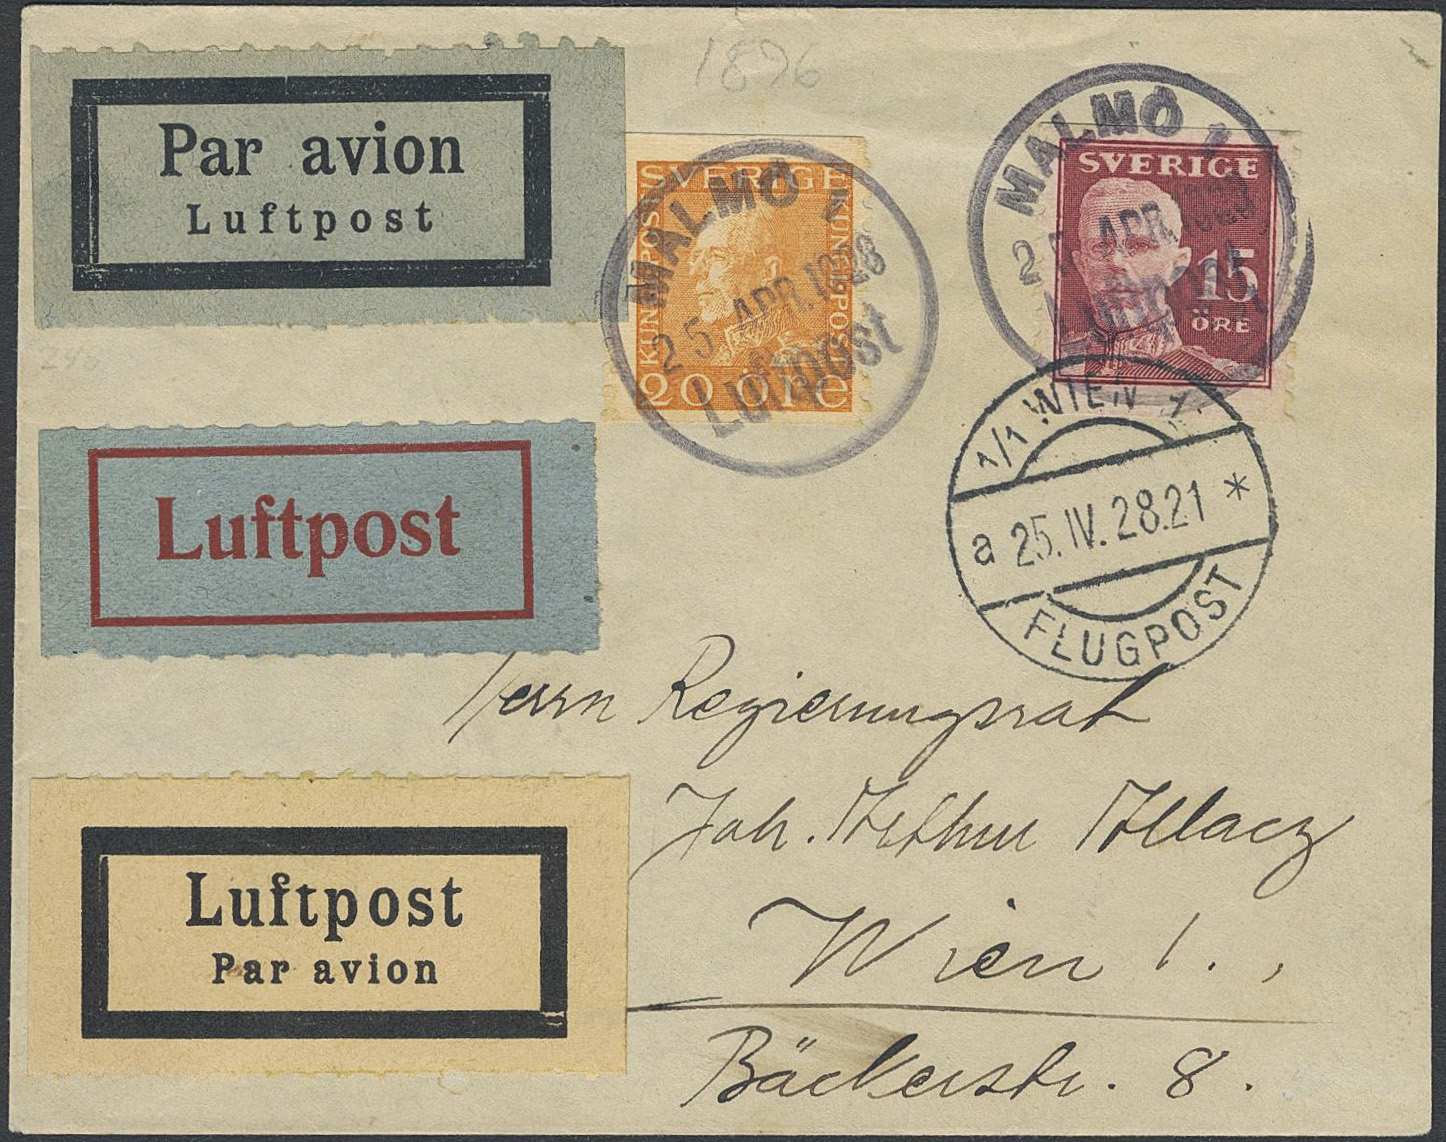 1896
Par avion
Luftpost
SVERIGE
KUNGL POST
KUNGL POST
20 ÖRE
MALMÖ 1
25 APR. 1928
Luftpost
SVERIGE
15
ÖRE
MALMÖ 1
25 APR. 1928
Luftpost
248
Luftpost
1/1 WIEN 1
a 25.IV.28.21 *
FLUGPOST
Herrn Regierungsrat
Joh. Arthur
Wien 1.
Bäckerstr. 8.
Luftpost
Par avion